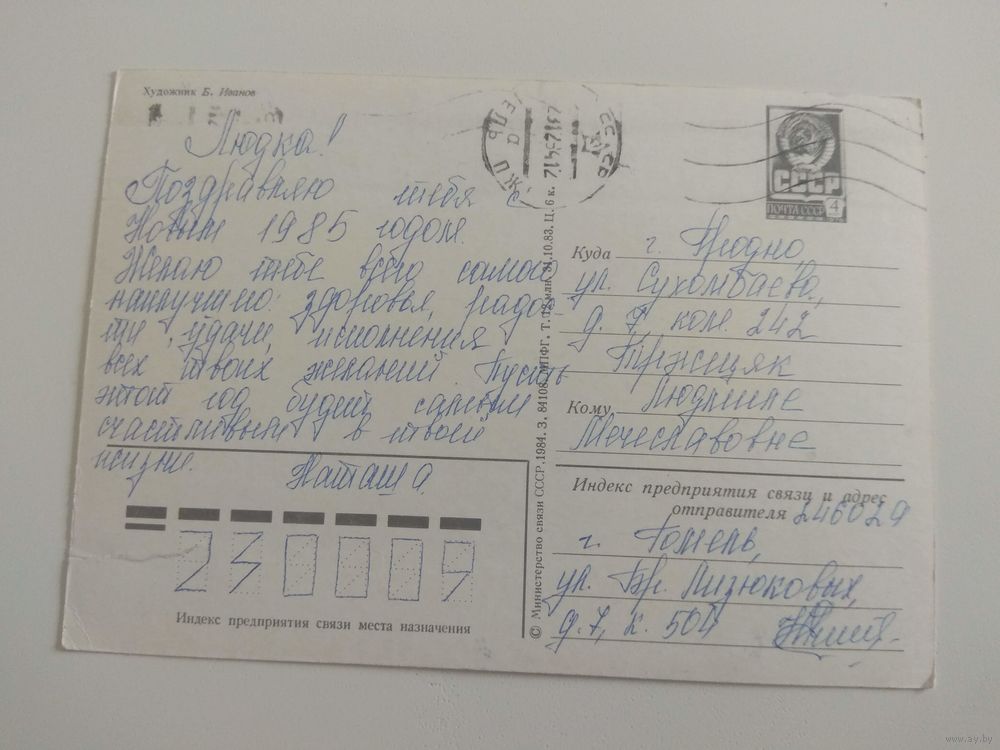 Художник Б. Иванов
Людка!
Поздравляю тебя с
Новым 1985 годом.
Желаю тебе всего самого
наилучшего: здоровья, радос-
ти, удачи, исполнения
всех твоих желаний. Пусть
этот год будет самым
счастливым в твоей
жизни.
Наташа.
230009
Индекс предприятия связи места назначения
© Министерство связи СССР, 1984. З. 84108. ППФГ. Т. 12 млн. 31.10.83. Ц. 6 к.
СССР
ПОЧТА СССР
4
Куда г. Гродно,
ул. Сухомбаева,
д. 7, ком. 242
Тржецяк
Кому Людмиле
Мечеславовне
Индекс предприятия связи и адрес
отправителя 246029
г. Гомель,
ул. Бр. Лизюковых,
д. 7, к. 504
www.ay.by